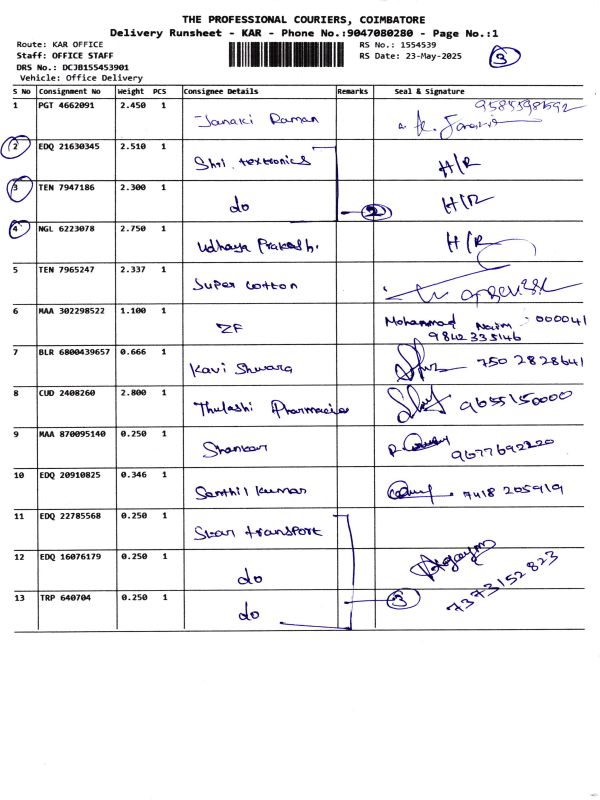 THE PROFESSIONAL COURIERS, COIMBATORE
Delivery Runsheet - KAR - Phone No.:9047080280 - Page No.:1
Route: KAR OFFICE RS No.: 1554539
Staff: OFFICE STAFF RS Date: 23-May-2025 3
DRS No.: DCJB155453901
Vehicle: Office Delivery
S No Consignment No Weight PCS Consignee Details Remarks Seal & Signature
1 PGT 4662091 2.450 1 Janaki Raman
2 EDQ 21630345 2.510 1 Shri. textronics H/R
3 TEN 7947186 2.300 1 do 2 H/R
4 NGL 6223078 2.750 1 Udhaya Prakash. H/R
5 TEN 7965247 2.337 1 Super Cotton
6 MAA 302298522 1.100 1 ZF Mohammad Naim : 000041
9842333146
7 BLR 6800439657 0.666 1 Kavi Shwara 750 2828641
8 CUD 2408260 2.800 1 Thulashi Pharmacies 9655150000
9 MAA 870095140 0.250 1 Shankar 9677692220
10 EDQ 20910825 0.346 1 Senthil Kumar 7418 205919
11 EDQ 22785568 0.250 1 Star transport
12 EDQ 16076179 0.250 1 do
13 TRP 640704 0.250 1 do 3 7373152823